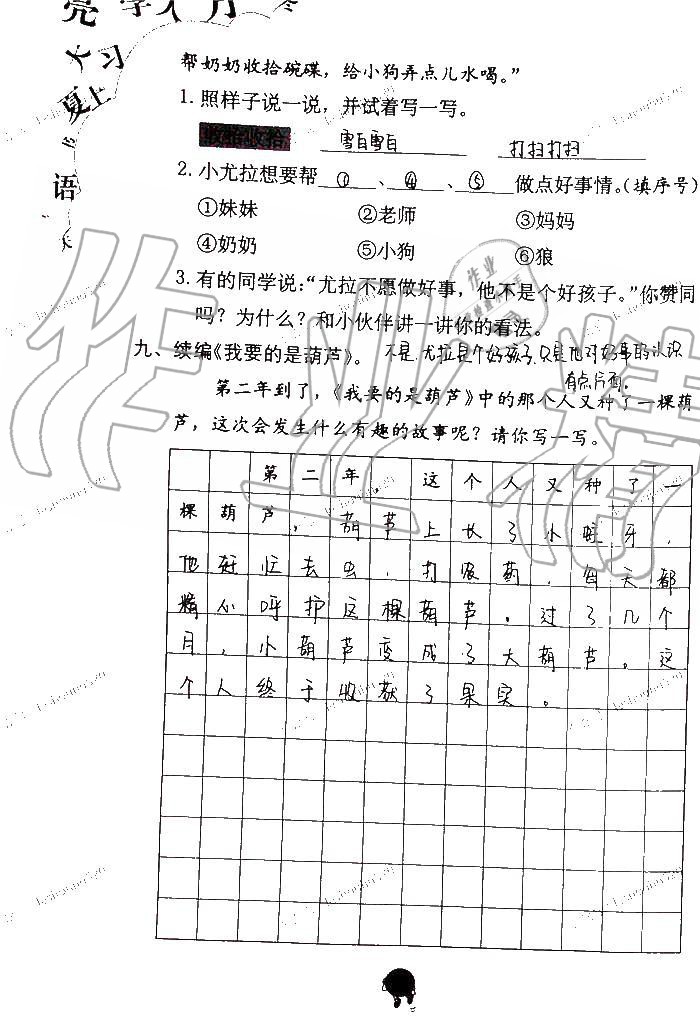 帮奶奶收拾碗碟，给小狗弄点儿水喝。”
1. 照样子说一说，并试着写一写。
收拾收拾 雪白雪白 打扫打扫
2. 小尤拉想要帮 ① 、 ④ 、 ⑤ 做点好事情。（填序号）
①妹妹 ②老师 ③妈妈
④奶奶 ⑤小狗 ⑥狼
3. 有的同学说：“尤拉不愿做好事，他不是个好孩子。”你赞同
吗？为什么？和小伙伴讲一讲你的看法。
九、续编《我要的是葫芦》。 不是.尤拉是个好孩子.只是他对好事的认识
有点片面。
第二年到了，《我要的是葫芦》中的那个人又种了一棵葫
芦，这次会发生什么有趣的故事呢？请你写一写。
第二年，这个人又种了一
棵葫芦，葫芦上长了小蚜牙，
他赶忙去虫，打农药，每天都
精心呵护这棵葫芦。过了几个
月，小葫芦变成了大葫芦。这
个人终于收获了果实。